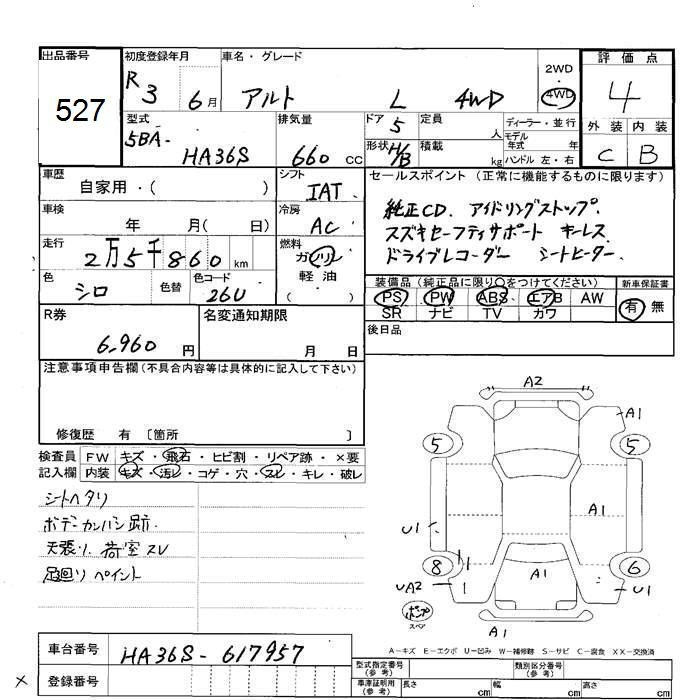 出品番号
527
初度登録年月
R3 6月
車名・グレード
アルト L 4WD
2WD
4WD
評価点
4
外装 内装
C B
型式
5BA-
HA36S
排気量
660 CC
ドア 5
形状 H/B
定員 人
積載 kg
ディーラー・並行
モデル年式 年
ハンドル 左・右
車歴
自家用・( )
シフト
IAT
セールスポイント (正常に機能するものに限ります)
純正CD. アイドリングストップ.
スズキセーフティサポート キーレス
ドライブレコーダー シートヒーター.
車検
年 月( 日)
冷房
AC
走行
2万5千860km
燃料
ガソリン
軽油
( )
色
シロ
色替
色コード
26U
装備品 (純正品に限り○をつけてください)
PS PW ABS エアB AW
SR ナビ TV カワ
新車保証書
有 無
R券
6,960 円
名変通知期限
月 日
後日品
注意事項申告欄(不具合内容等は具体的に記入して下さい)
修復歴 有 〔箇所 〕
検査員
記入欄
FW キズ・飛石・ヒビ割・リペア跡・×要
内装 キズ・汚レ・コゲ・穴・スレ・キレ・破レ
シートヘタリ
ボデーカンバン跡
天張リ. 荷室スレ
足回リペイント
A2
A1
5
5
A1
U1
8
6
A1
UA2
U1
ポンプ
スペア
A1
A-キズ E-エクボ U-凹み W-補修跡 S-サビ C-腐食 XX-交換済
車台番号
HA36S-617957
登録番号
×
型式指定番号
(参考)
類別区分番号
(参考)
車庫証明用
(参考)
長さ cm
幅 cm
高さ cm